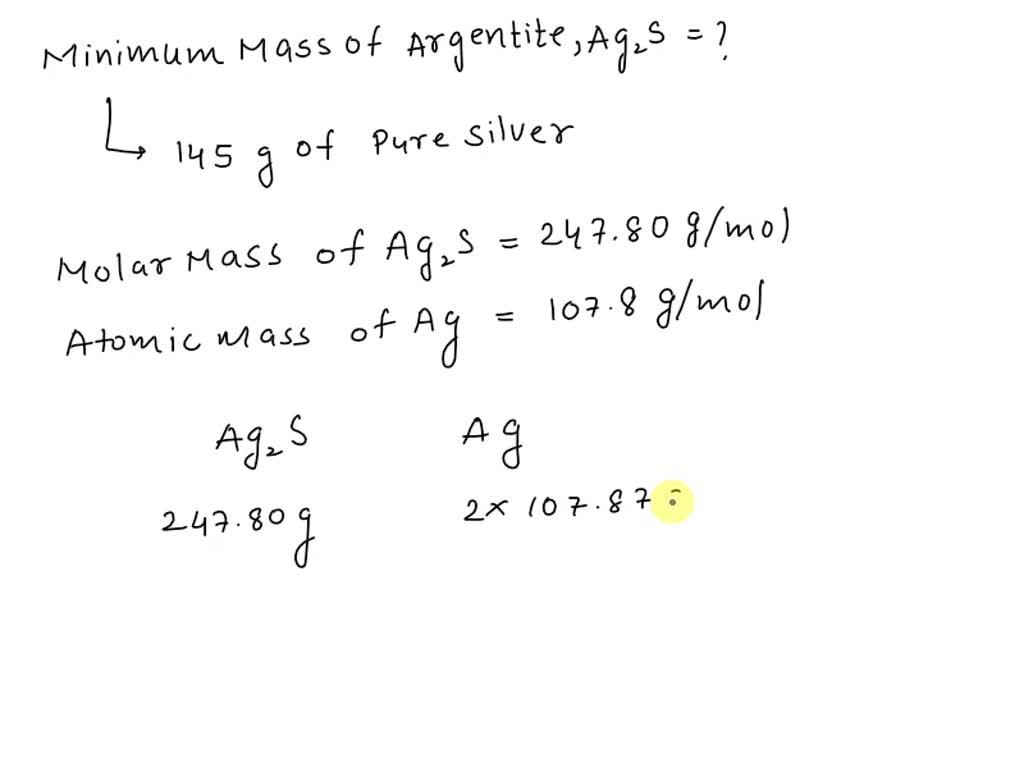 Minimum Mass of Argentite, Ag₂S = ?
↳ 145 g of Pure silver
Molar Mass of Ag₂S = 247.80 g/mol
Atomic mass of Ag = 107.8 g/mol
Ag₂S Ag
247.80g 2× 107.87